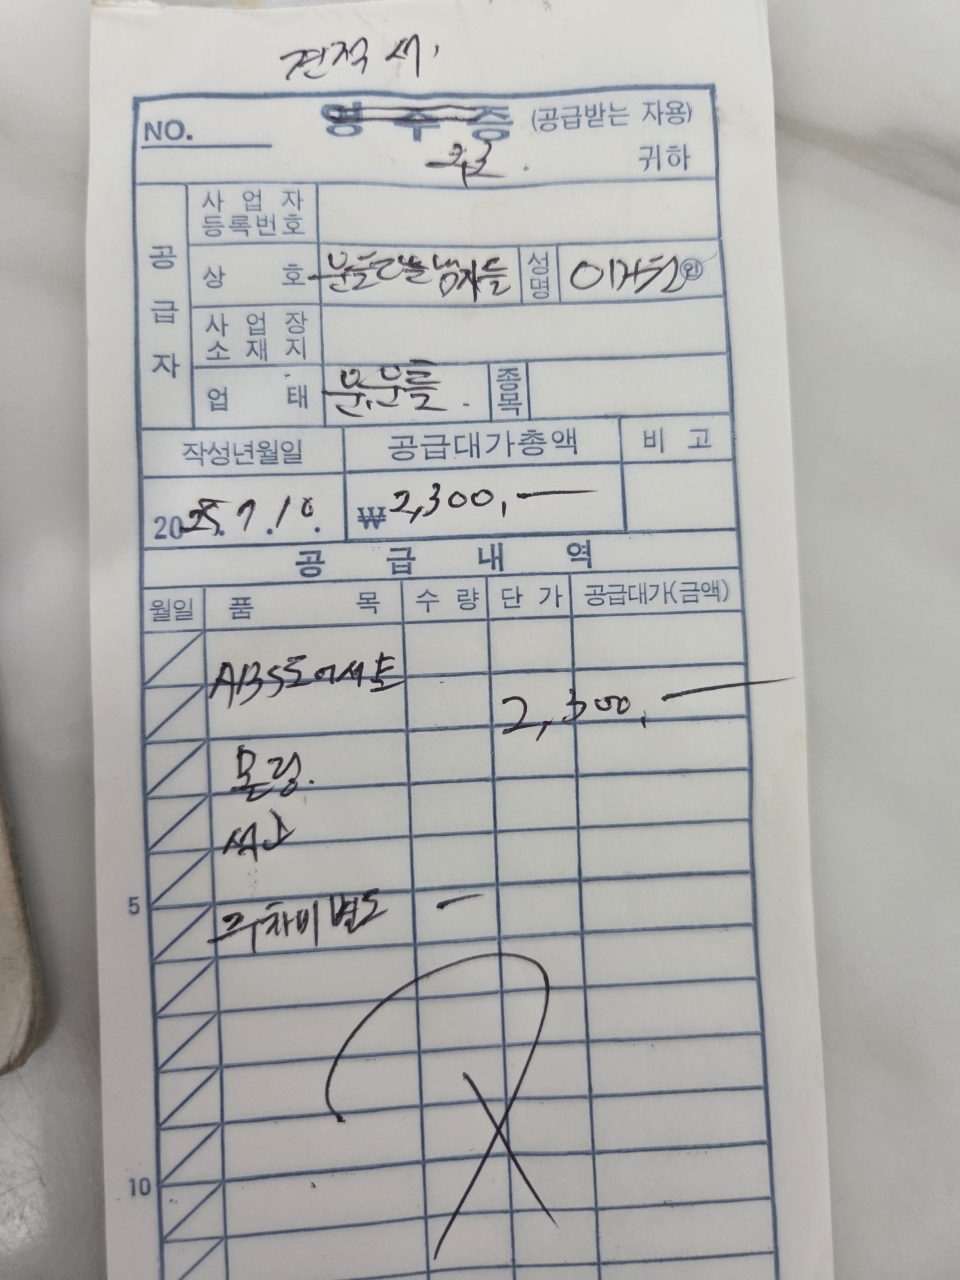 견적서.
NO. 영수증 (공급받는 자용)
귀하
공급자
사업자등록번호
상호 문틀다는남자들 성명 ㊞
사업장소재지
업태 문,문틀. 종목
작성년월일 공급대가총액 비고
2025.7.10. ₩2,300,—
공급내역
월일 품목 수량 단가 공급대가(금액)
ABS도어세트
2,300,—
몰딩.
5
주차비별도 —
10